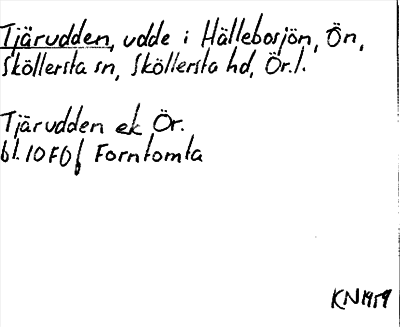 Tjärudden, udde i Hällebosjön, Ön,
Sköllersta sn, Sköllersta hd, Ör. l.
Tjärudden ek Ör.
bl. 10F0f Forntomta
KN 1959